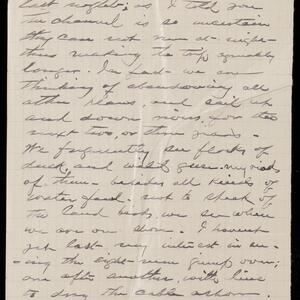 last night; as I told you
the channel is so uncertain
they can not run at night
thus making the trip equally
longer. In fact we are
thinking of abandoning all
other plans, and sail up
and down rivers for the
next two, or three years.
We frequently see flocks of
duck, and wild geese, myriads
of them - besides all kinds of
water fowl. not to speak of
the land birds, we see when
we are on shore. I haven't
yet lost my interest in see-
ing the eight men jump over;
one after another, with lines
to drag the cable ashore.